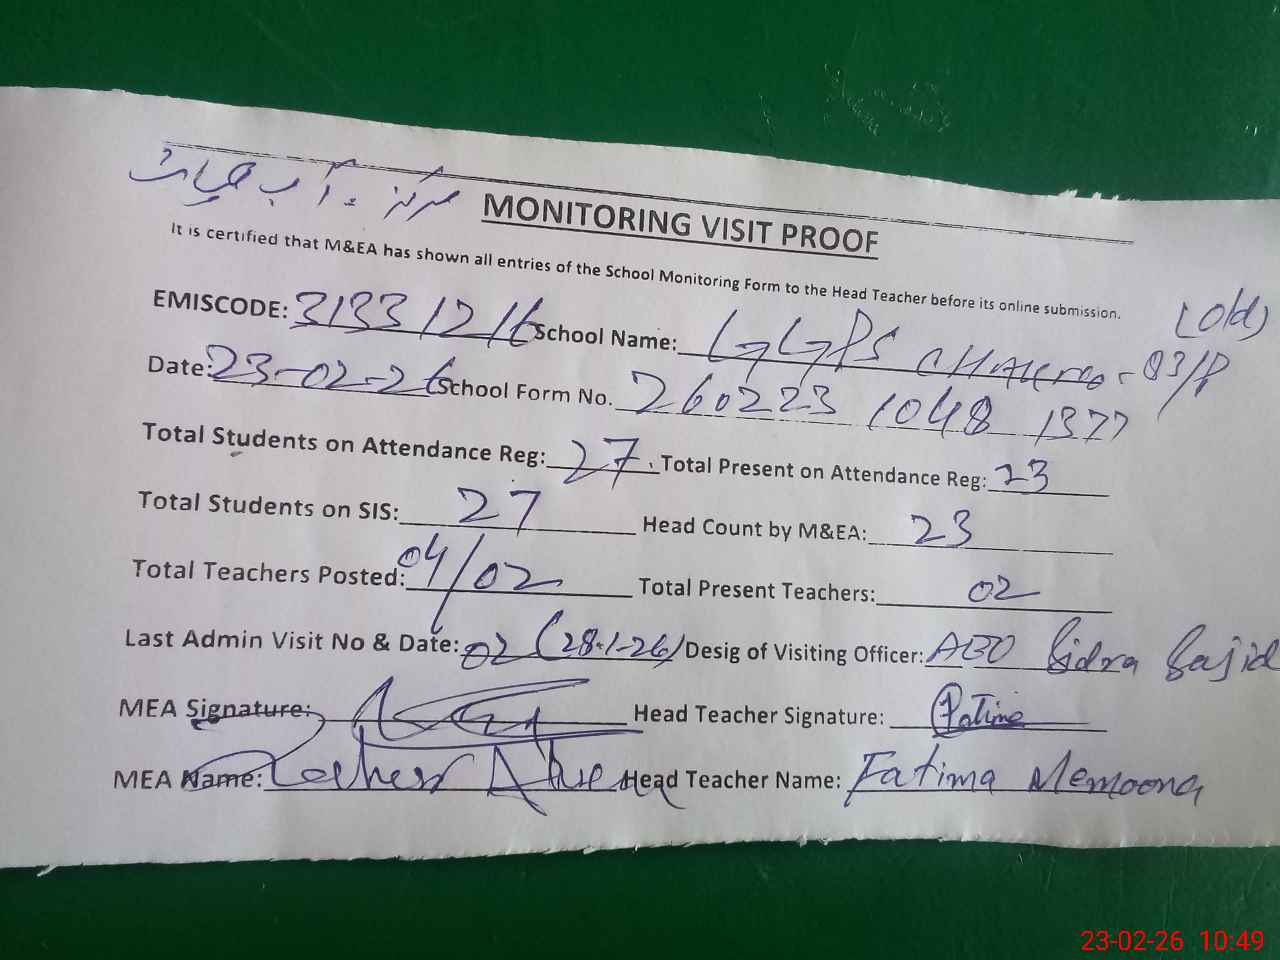 مرکز۔ آب حیات
MONITORING VISIT PROOF
It is certified that M&EA has shown all entries of the School Monitoring Form to the Head Teacher before its online submission.
(Old)
EMISCODE: 31331216 School Name: GGPS 93/P
Date: 23-02-26 School Form No. 260223 1048 1377
Total Students on Attendance Reg: 27 . Total Present on Attendance Reg: 23
Total Students on SIS: 27 Head Count by M&EA: 23
Total Teachers Posted: 04/02 Total Present Teachers: 02
Last Admin Visit No & Date: 02 (28-1-26) Desig of Visiting Officer: AEO Sidra Sajid
MEA Signature: Head Teacher Signature: Fatima
MEA Name: Head Teacher Name: Fatima Memoona
23-02-26 10:49